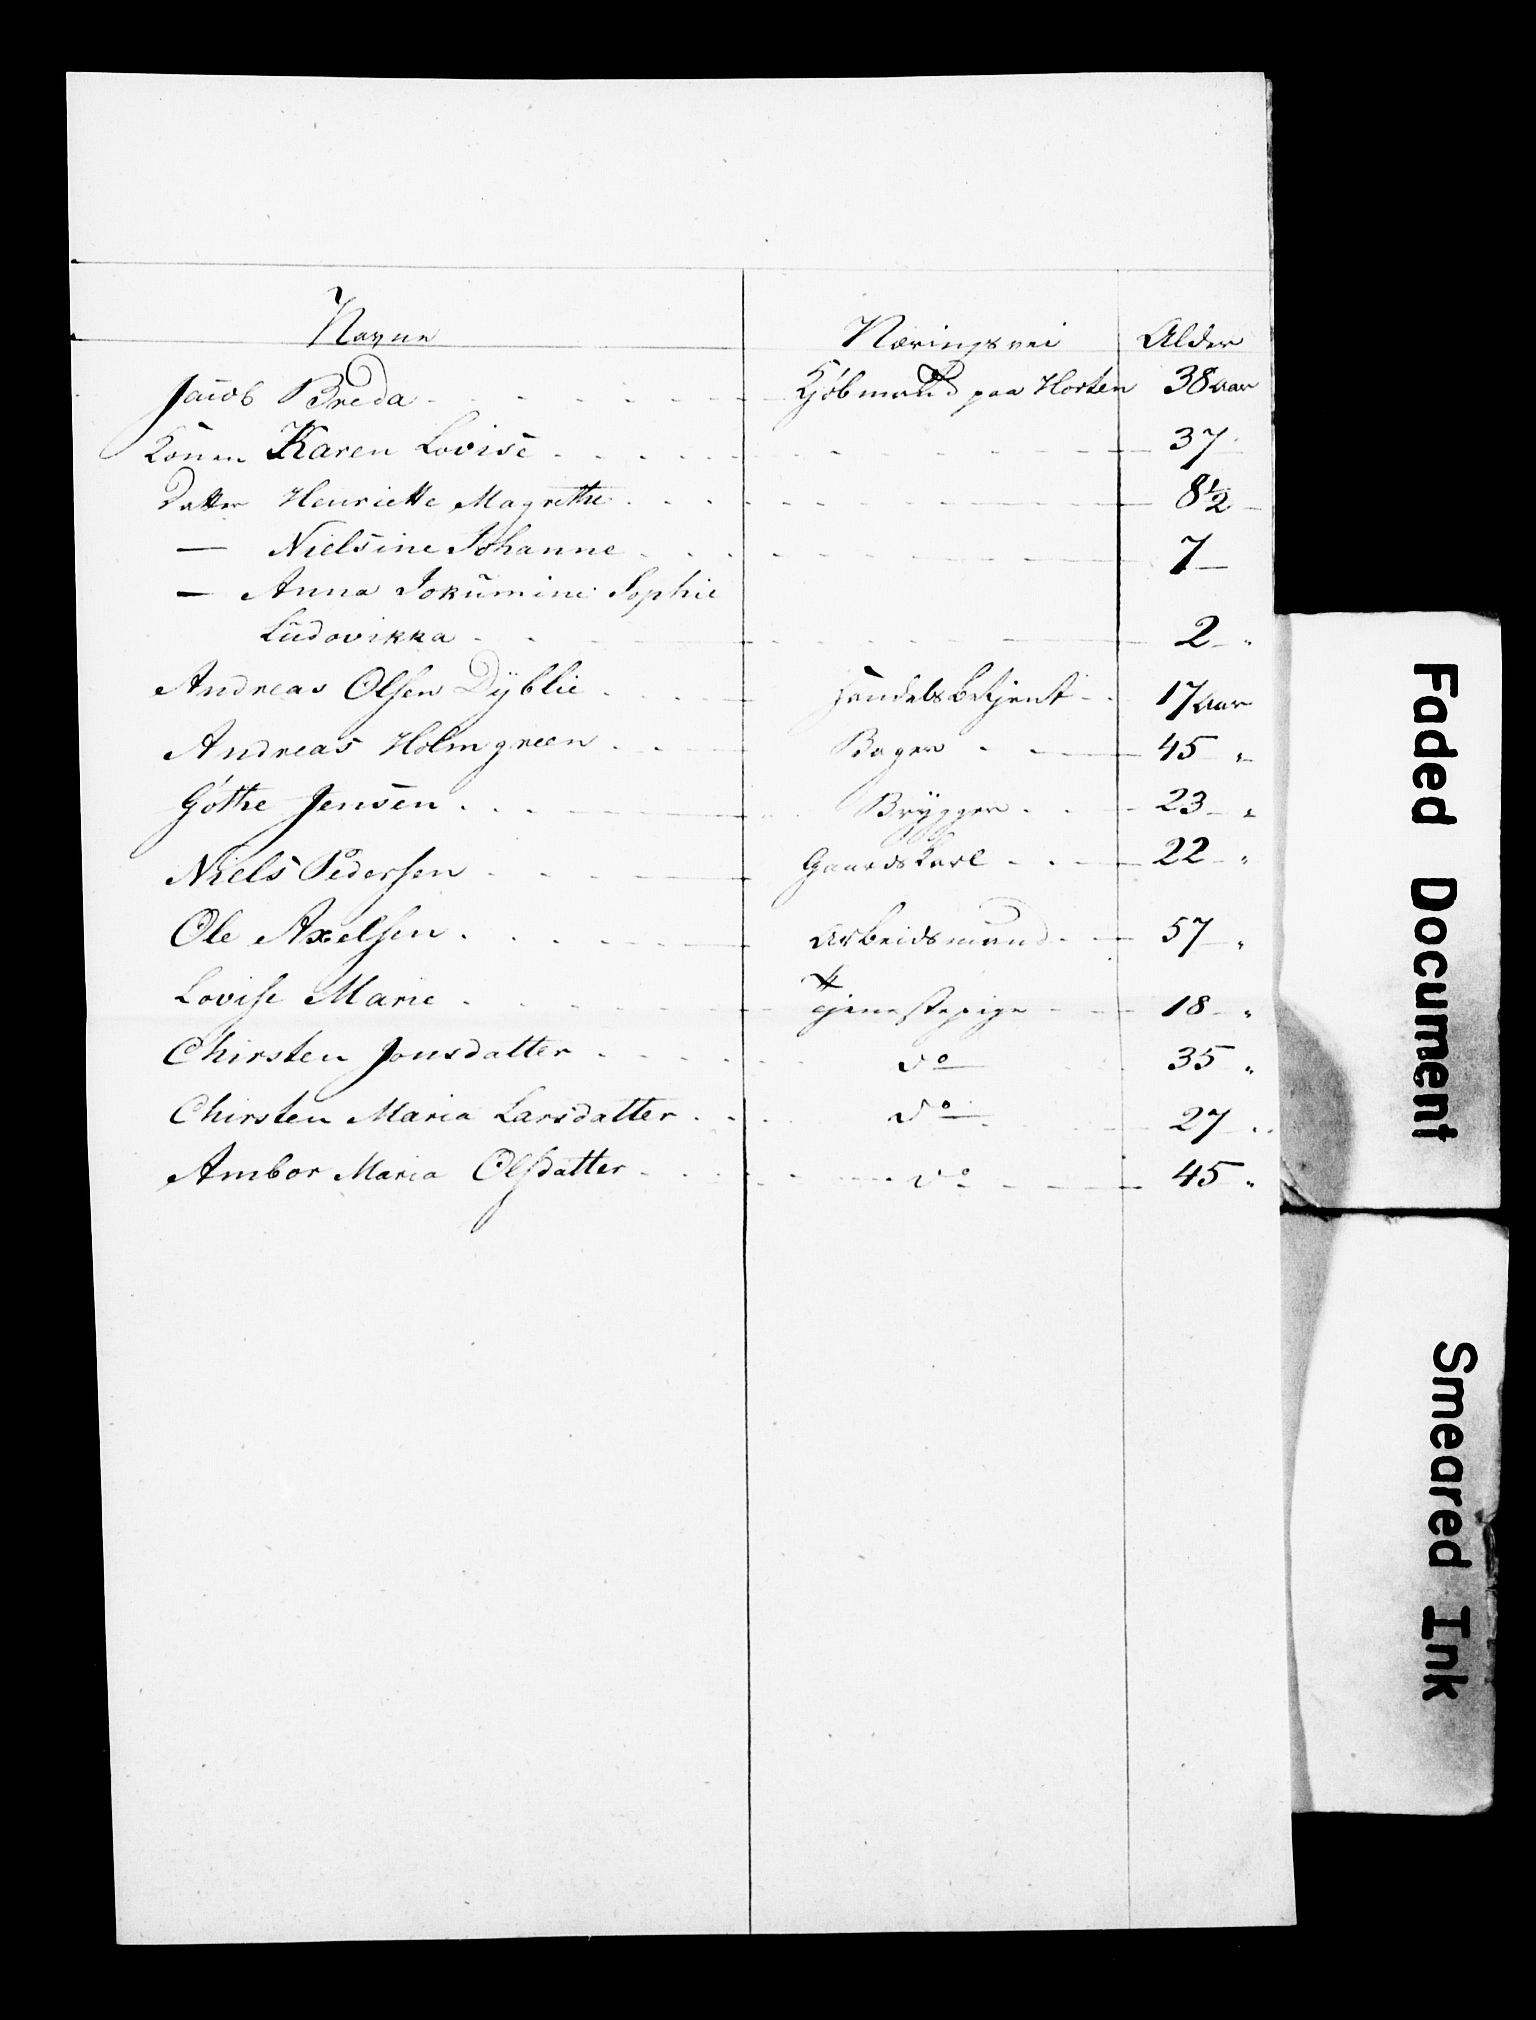 Navne Næringsvei Alder
Jacob Breda Kjöbmand paa Horten 38 aar
Konen Karen Lovise 37
Datter Henriette Magrethe 8½
— Nielsine Johanne 7
— Anna Jokumine Sophie
Ludovikka 2 "
Andreas Olsen Dÿblie Handelsbetjent 17 aar
Andreas Holmgreen Bager 45 "
Göthe Jensen Brÿgger 23 "
Niels Pedersen Gaardskarl 22 "
Ole Axelsen Arbeidsmand 57 "
Lovise Marie Tjenestepige 18 "
Chirsten Jonsdatter do 35 "
Chirsten Maria Larsdatter do 27 "
Ambor Maria Olsdatter do 45 "
Faded Document
Smeared Ink